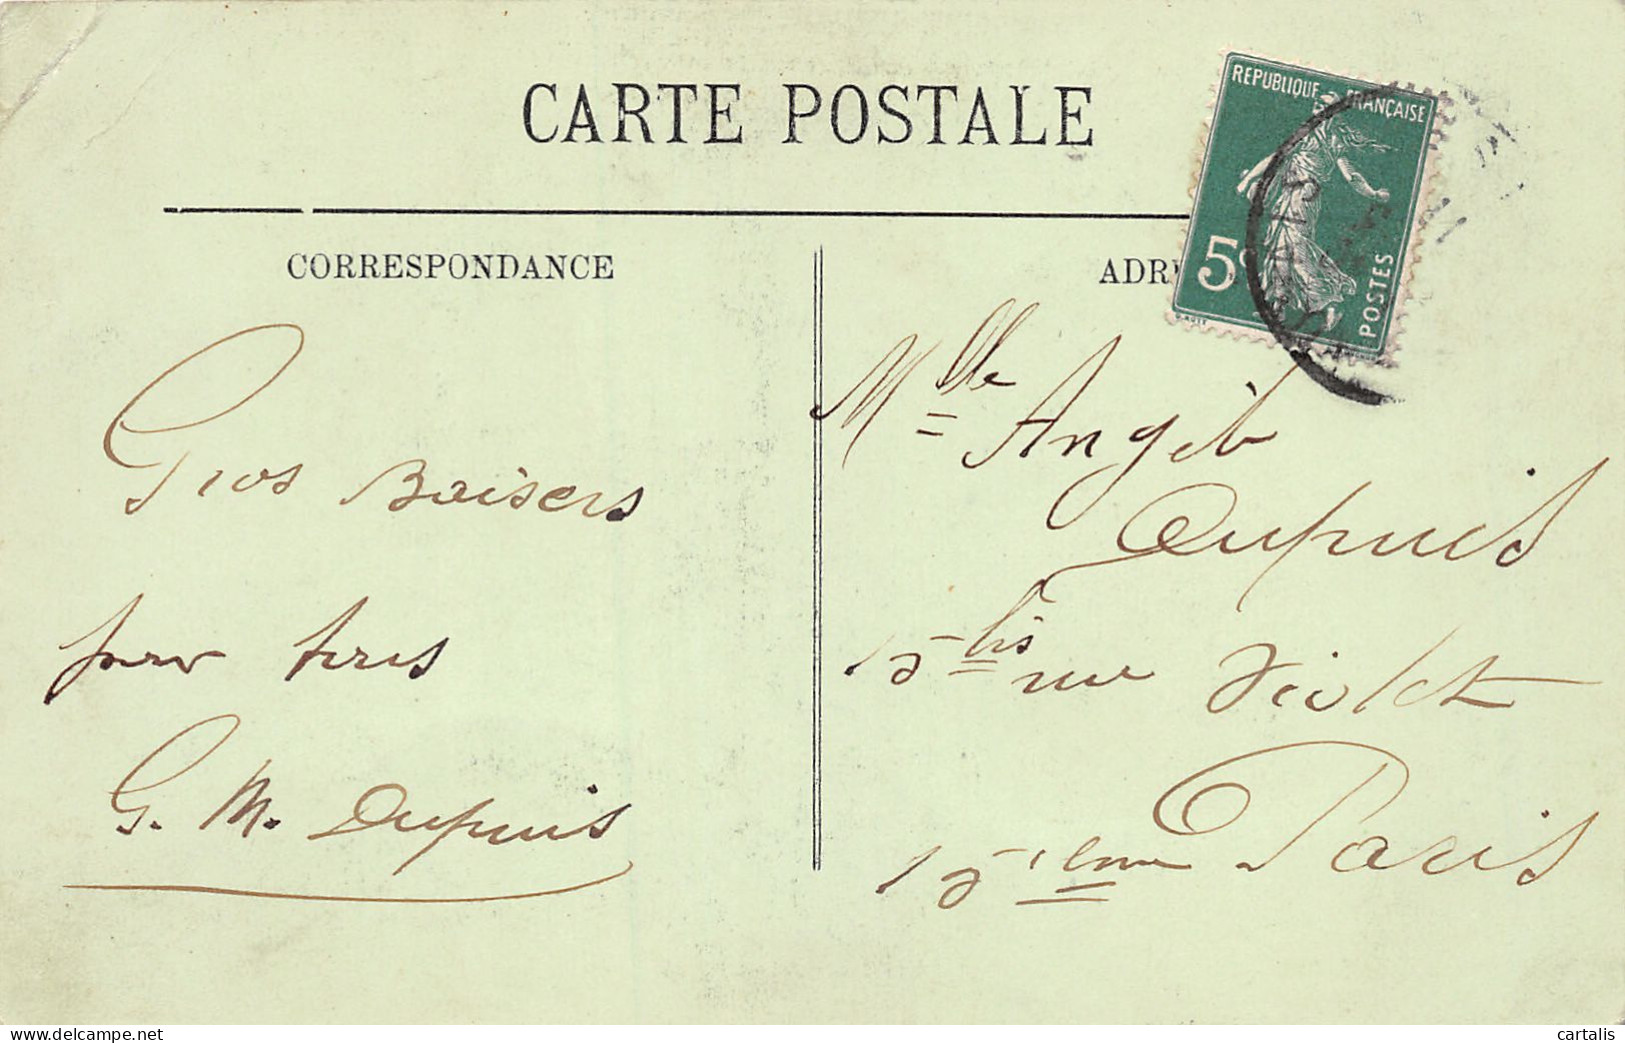 CARTE POSTALE
REPUBLIQUE FRANÇAISE
5c
POSTES
CORRESPONDANCE
ADR
Gros Baisers
pour tous
G. M. Dupuis
Mlle Angèle
Dupuis
15 bis rue Violet
15ième Paris
www.delcampe.net
cartalis